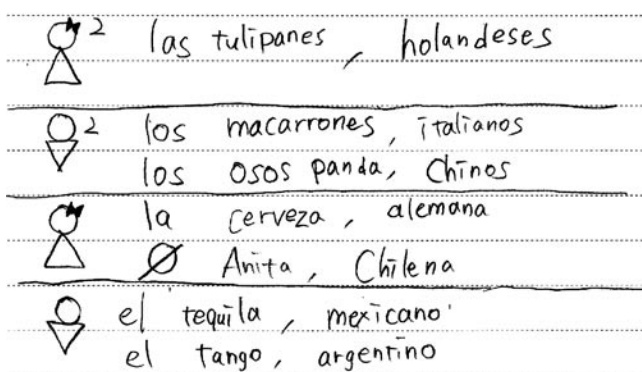 2 las tulipanes, holandeses
2 los macarrones, italianos
los osos panda, Chinos
la cerveza, alemana
Ø Anita, Chilena
el tequila, mexicano
el tango, argentino